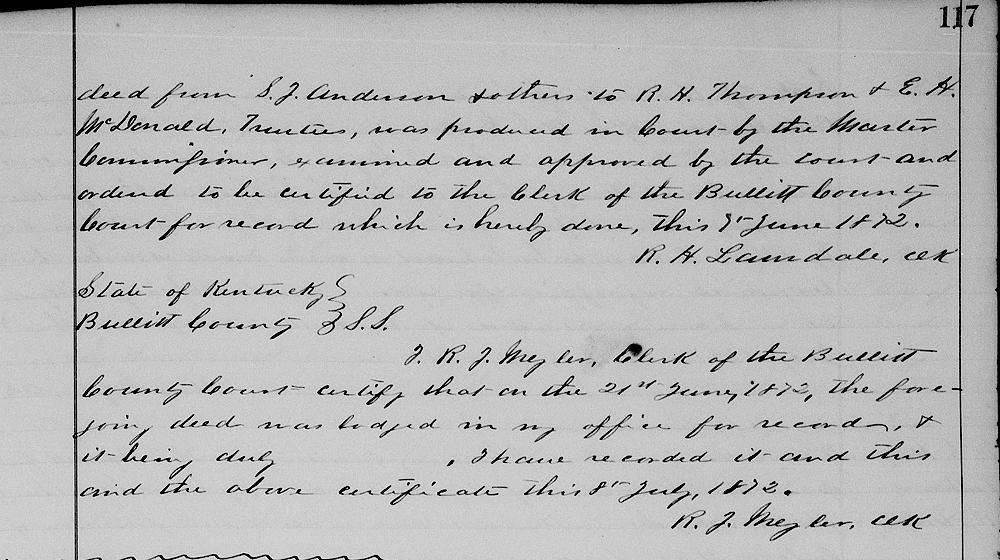 117
deed from S. J. Anderson & others to R. H. Thompson & E. H.
McDonald, Trustees, was produced in Court by the Master
Commissioner, examined and approved by the court and
ordered to be certified to the Clerk of the Bullitt County
Court for record which is hereby done, this June 1872.
R. H. clk
State of Kentucky
Bullitt County } S.S.
I. R. J. Meyler, Clerk of the Bullitt
County Court certify that on the 21st June, 1872, the fore-
going deed was lodged in my office for record, &
it being duly , I have recorded it and this
and the above certificate this 8th July, 1872.
R. J. Meyler, clk